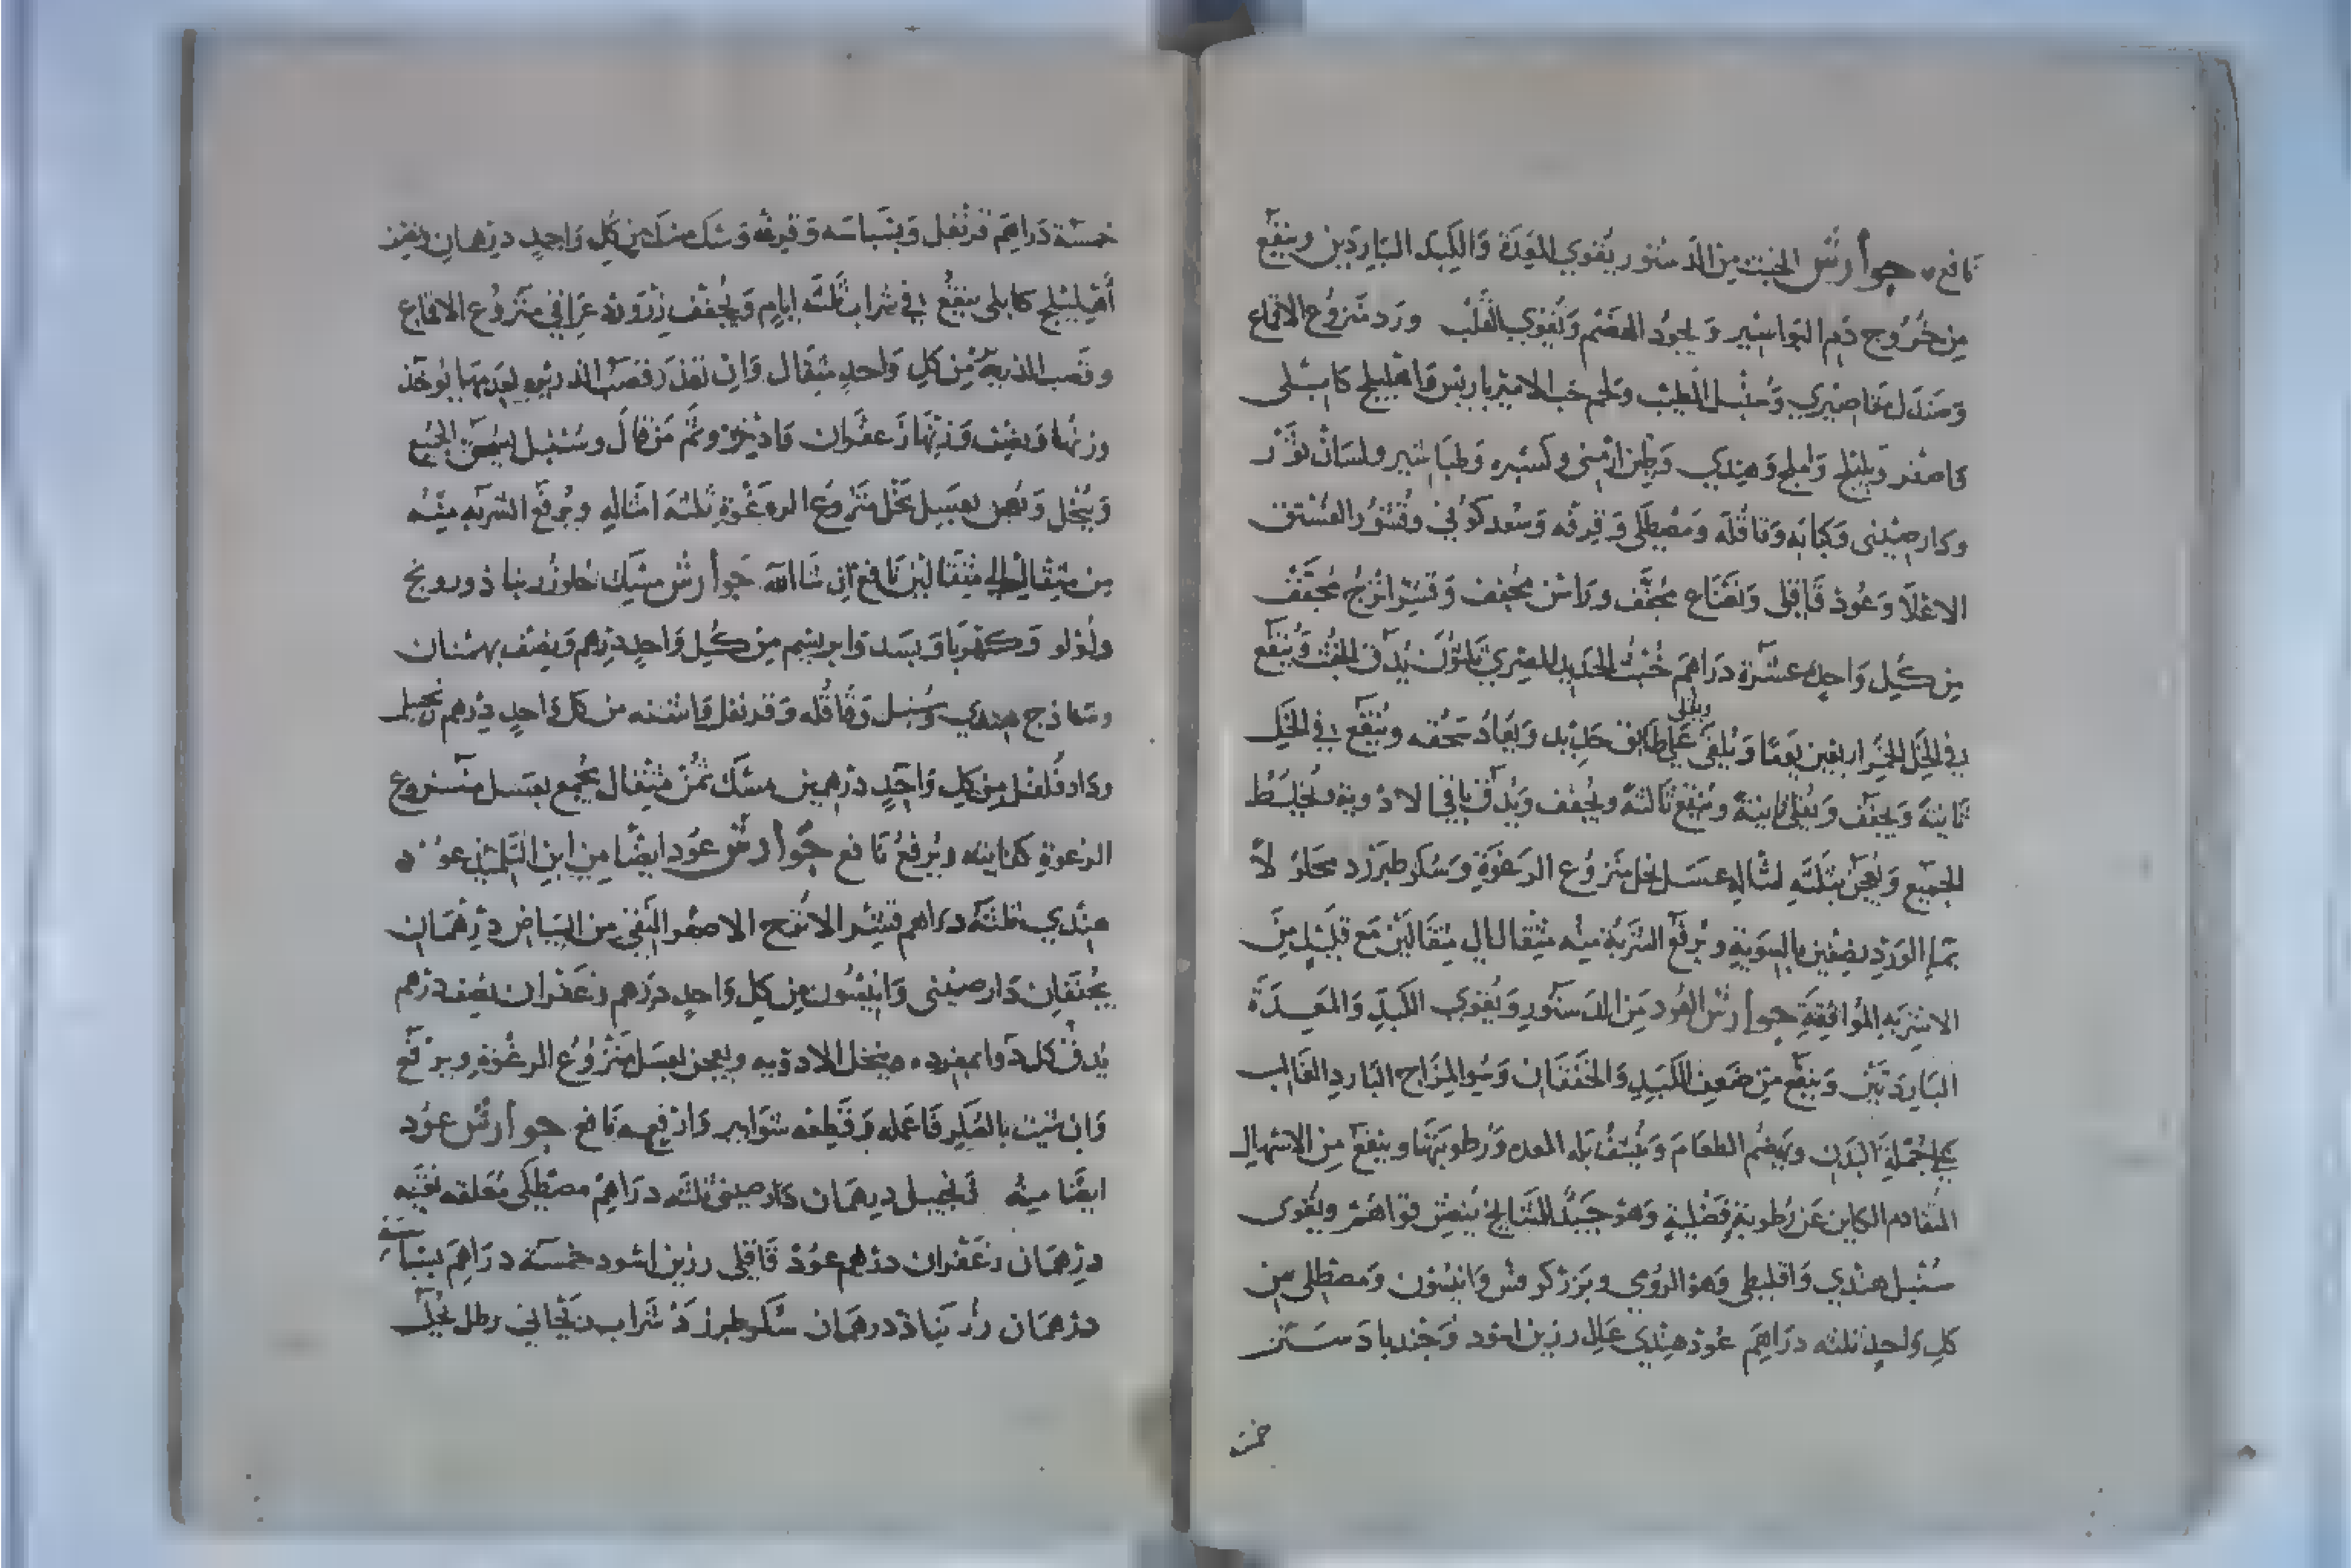 نافع جوارش الخبث من الدستور يقوي المعدة والكبد الباردين وينفع
من خروج دم البواسير ويجود الهضم ويقوي القلب ورد منزوع الاقماع
وصندل مقاصيري وسنبل الطيب ولحم حب الامبرباريس واهليلج كابلى
واصفر وبليلج واملج وهندي وطين ارمنى وكسبره وطباشير ولسان ثور
ودارصينى وكبابه وقاقله ومصطكى وقرفه وسعد كوفي وقشور الفستق
الاعلا وعود قاقلى ونعناع مجفف وراسن مجفف وقشر اترج مجفف
من كل واحد عشرة دراهم خبث الحديد المصري ثلثون يدق الخبث وينقع
في الخل الخمر اربعين يوما ويلقى على طابق حديد ويعاد سحقه وينقع في الخل
ويغلى
ثانية ويجفف ويقلى ثانية وينقع ثالثة ويجفف ويدق باقي الادويه ويخلط
الجميع ويعجن بثلثه امثاله عسل نحل منزوع الرغوة وسكر طبرزد محلولا
بماء الورد نصفين بالسوية ويرفع الشربة منه مثقال الى مثقالين مع قليل من
الاشربه الموافقة جوارش العود من الدستور ويقوي الكبد والمعدة
الباردتين وينفع من ضعف الكبد والخفقان وسو المزاج البارد الغالب
على جملة البدن ويهضم الطعام وينشف بله المعده ورطوبتها وينفع من الاسهال
المتقادم الكاين عن رطوبة فضلية وهو جيد للمشايخ ينعش قواهم ويقوى
سنبل هندي واقليطى وهو الرومي وبزر كرفس وانيسون ومصطكى من
كل واحد ثلثه دراهم عود هندي رزين اسود وجندبادستر
خمسة
خمسة دراهم قرنفل وبسباسه وقرفه وسك مسك من كل واحد درهمان ونصف
اهليلج كابلى ينقع في شراب ثلثه ايام ويجفف زرورد عراقي منزوع الاقماع
وقصب الذريره من كل واحد مثقال وان تعذر قصب الذريره يوخذ
وزنها ونصف وزنها زعفران وسنبل يسحق الجميع
وينخل ويعجن بعسل نحل منزوع الرغوة ثلثه امثاله ويرفع الشربه منه
من مثقال الى مثقالين نافع ان شاالله جوارش مسك حلو زرنبا ذ ودرونج
ولولو وكهربا وبسد وابريسم من كل واحد درهم ونصف بهمنان
وساذج هندي وسنبل وقاقله وقرنفل واشنه من كل واحد درهم زنجبيل
ودارفلفل من كل واحد درهمين مسك ثمن مثقال يجمع بعسل منزوع
الرغوة كفايته ويرفع نافع جوارش عود ايضا من ابن التلميذ عود
هندي ثلثه دراهم قشر الاترج الاصفر النقي من البياض درهمان
يجففان دارصينى وانيسون من كل واحد درهم زعفران نصف درهم
يدق كل دوا بمفرده وينخل الادويه ويعجن بعسل منزوع الرغوة ويرفع
وان شيت فاعمله وقطعه شوابير وارفعه نافع جوارش عود
ايضا منه زنجبيل درهمان دارصينى ثلثه دراهم مصطكى
درهمان زعفران درهم عود قاقلى رزين اسود خمسة دراهم بسباسة
درهمان زرنباذ درهمان سكر طبرزذ شراب ريحاني رطل يحل